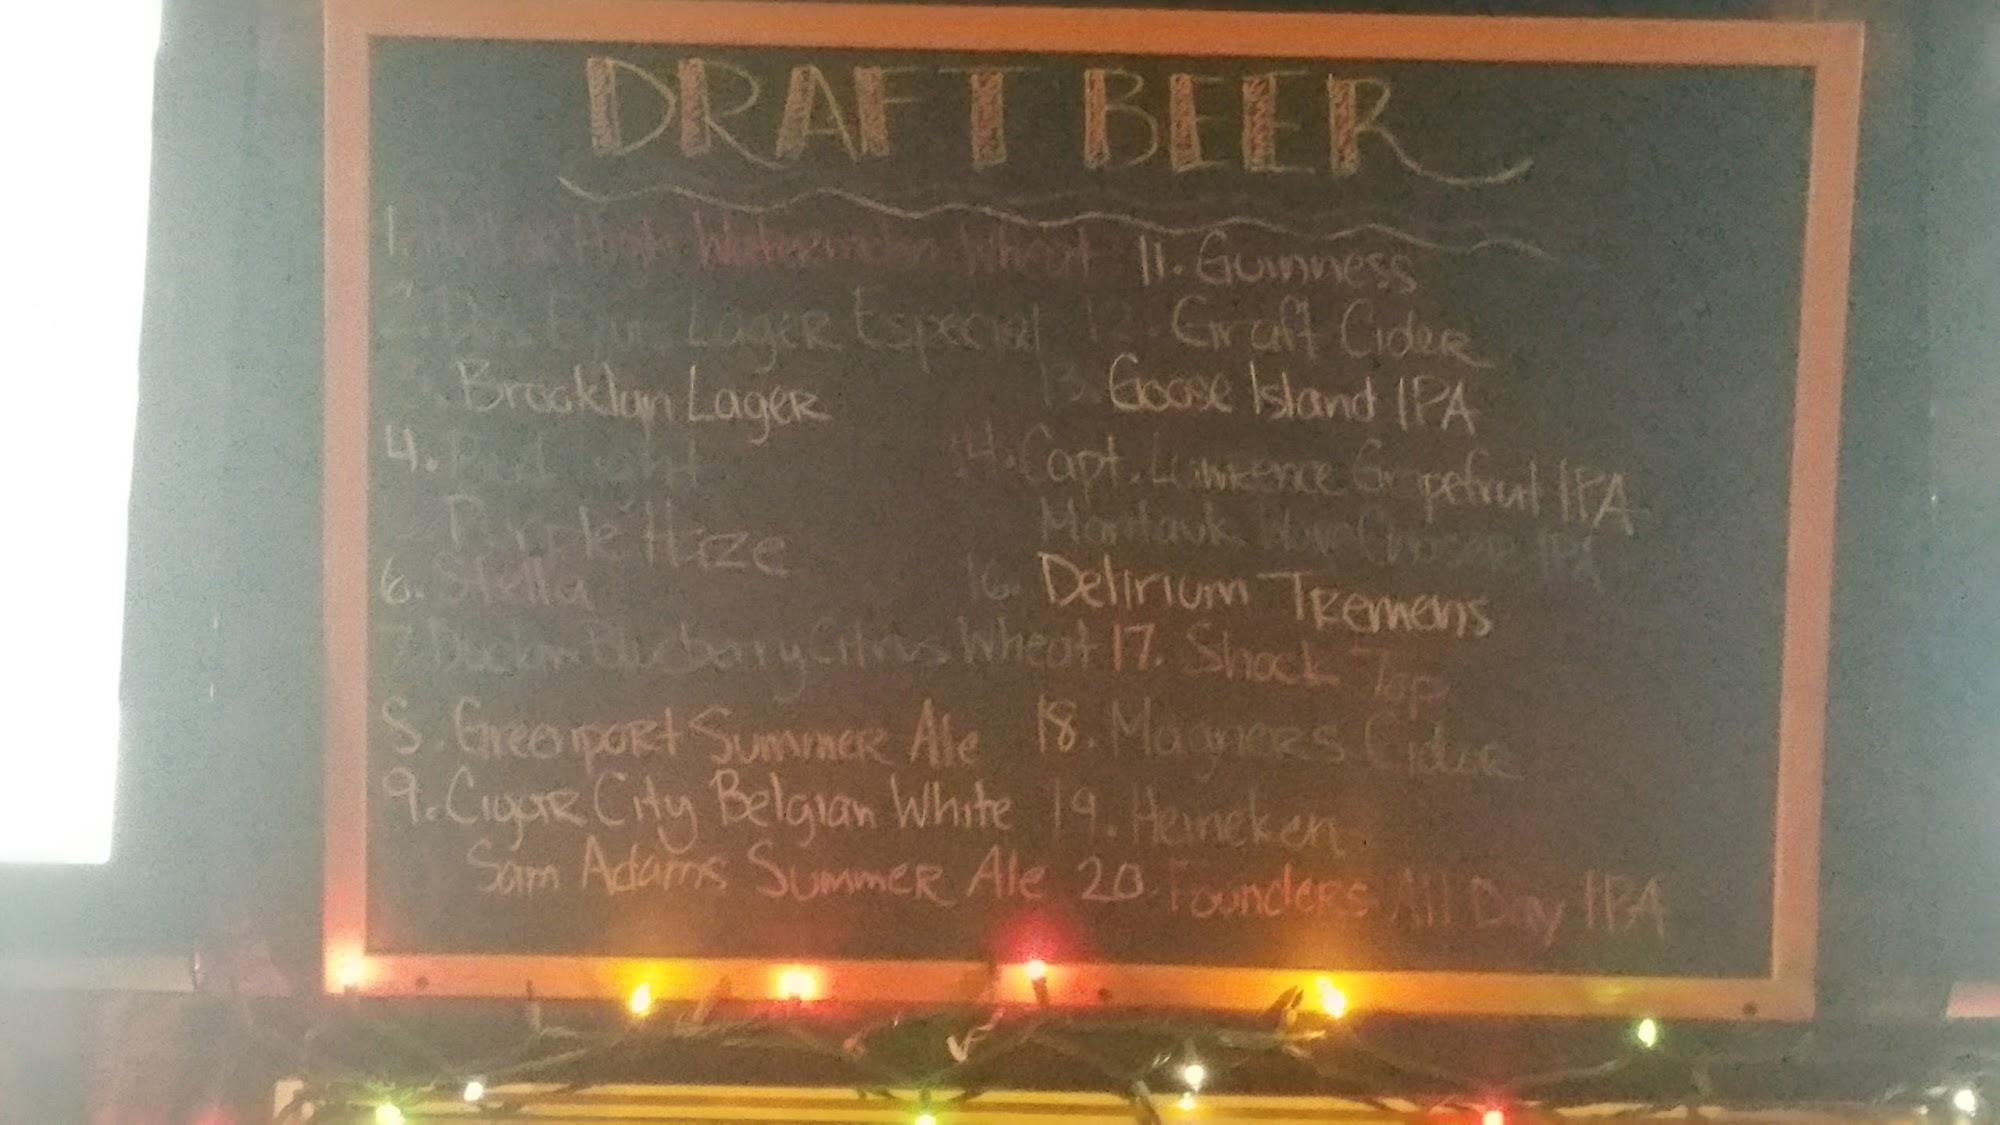 DRAFT BEER
1. Watermelon Wheat
2. Lager Especial
3. Brooklyn Lager
4. Bud Light
Purple Haze
6. Stella
7. Blueberry Citrus Wheat
8. Greenport Summer Ale
9. Cigar City Belgian White
Sam Adams Summer Ale
11. Guinness
12. Graft Cider
13. Goose Island IPA
14. Capt. Lawrence Grapefruit IPA
Montauk Wave Chaser IPA
16. Delirium Tremens
17. Shock Top
18. Magners Cider
19. Heineken
20. Founders All Day IPA